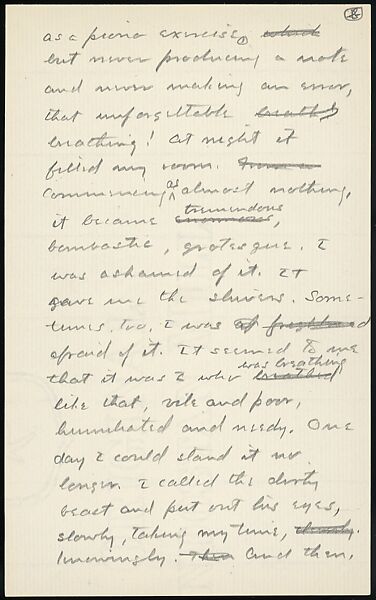 8
as a piano exercise, which
but never producing a note
and never making an error,
that unforgettable breath
breathing! At night it
filled my room.
Commencing as almost nothing,
it became enormous, tremendous,
bombastic, grotesque. I
was ashamed of it. It
gave me the shivers. Some-
times, too, I was frightened
afraid of it. It seemed to me
that it was I who breathed was breathing
like that, vile and poor,
humiliated and needy. One
day I could stand it no
longer. I called the dirty
beast and put out his eyes,
slowly, taking my time,
knowingly. Then And then,